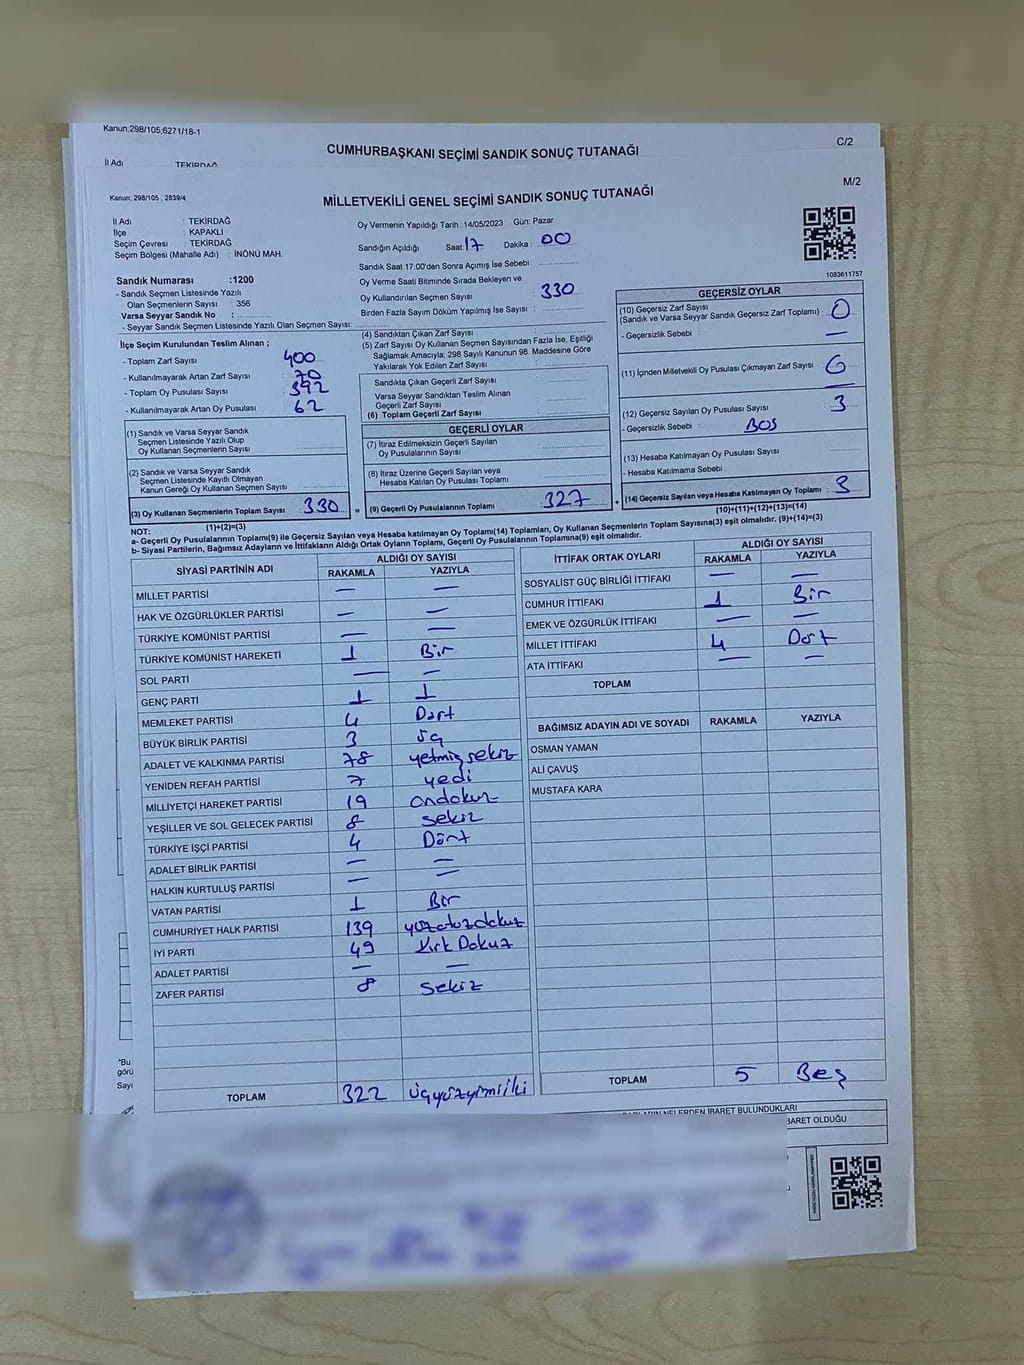 Kanun,298/105,6271/18-1
C/2
CUMHURBAŞKANI SEÇİMİ SANDIK SONUÇ TUTANAĞI
İl Adı TEKİRDAĞ
M/2
Kanun; 298/105 , 2839/4
MİLLETVEKİLİ GENEL SEÇİMİ SANDIK SONUÇ TUTANAĞI
İl Adı : TEKİRDAĞ
İlçe : KAPAKLI
Seçim Çevresi : TEKİRDAĞ
Seçim Bölgesi (Mahalle Adı) : İNÖNÜ MAH.
Sandık Numarası :1200
- Sandık Seçmen Listesinde Yazılı
Olan Seçmenlerin Sayısı : 356
Varsa Seyyar Sandık No :
- Seyyar Sandık Seçmen Listesinde Yazılı Olan Seçmen Sayısı:
Oy Vermenin Yapıldığı Tarih : 14/05/2023 Gün: Pazar
Sandığın Açıldığı Saat: 17 Dakika : 00
Sandık Saat 17:00'den Sonra Açımış İse Sebebi:
Oy Verme Saati Bitiminde Sırada Bekleyen ve
Oy Kullandırılan Seçmen Sayısı : 330
Birden Fazla Sayım Döküm Yapılmış İse Sayısı :
1083611757
İlçe Seçim Kurulundan Teslim Alınan ;
- Toplam Zarf Sayısı : 400
- Kullanılmayarak Artan Zarf Sayısı : 70
- Toplam Oy Pusulası Sayısı : 392
- Kullanılmayarak Artan Oy Pusulası : 62
(1) Sandık ve Varsa Seyyar Sandık
Seçmen Listesinde Yazılı Olup
Oy Kullanan Seçmenlerin Sayısı
(2) Sandık ve Varsa Seyyar Sandık
Seçmen Listesinde Kayıtlı Olmayan
Kanun Gereği Oy Kullanan Seçmen Sayısı :
(3) Oy Kullanan Seçmenlerin Toplam Sayısı 330 =
(1)+(2)=(3)
(4) Sandıktan Çıkan Zarf Sayısı :
(5) Zarf Sayısı Oy Kullanan Seçmen Sayısından Fazla İse, Eşitliği
Sağlamak Amacıyla; 298 Sayılı Kanunun 98. Maddesine Göre
Yakılarak Yok Edilen Zarf Sayısı :
Sandıkta Çıkan Geçerli Zarf Sayısı :
Varsa Seyyar Sandıktan Teslim Alınan
Geçerli Zarf Sayısı :
(6) Toplam Geçerli Zarf Sayısı :
GEÇERLİ OYLAR
(7) İtiraz Edilmeksizin Geçerli Sayılan
Oy Pusulalarının Sayısı :
(8) İtiraz Üzerine Geçerli Sayılan veya
Hesaba Katılan Oy Pusulası Toplamı :
(9) Geçerli Oy Pusulalarının Toplamı : 327 +
GEÇERSİZ OYLAR
(10) Geçersiz Zarf Sayısı
(Sandık ve Varsa Seyyar Sandık Geçersiz Zarf Toplamı) : 0
- Geçersizlik Sebebi : —
(11) İçinden Milletvekili Oy Pusulası Çıkmayan Zarf Sayısı
(12) Geçersiz Sayılan Oy Pusulası Sayısı : 3
- Geçersizlik Sebebi : BOŞ
(13) Hesaba Katılmayan Oy Pusulası Sayısı :
- Hesaba Katılmama Sebebi :
(14) Geçersiz Sayılan veya Hesaba Katılmayan Oy Toplamı : 3
(10)+(11)+(12)+(13)=(14)
NOT:
a- Geçerli Oy Pusulalarının Toplamı(9) ile Geçersiz Sayılan veya Hesaba Katılmayan Oy Toplamı(14) Toplamları, Oy Kullanan Seçmenlerin Toplam Sayısına(3) eşit olmalıdır. (9)+(14)=(3)
b- Siyasi Partilerin, Bağımsız Adayların ve İttifakların Aldığı Ortak Oyların Toplamı, Geçerli Oy Pusulalarının Toplamına(9) eşit olmalıdır.
SİYASİ PARTİNİN ADI ALDIĞI OY SAYISI
RAKAMLA YAZIYLA
MİLLET PARTİSİ — —
HAK VE ÖZGÜRLÜKLER PARTİSİ — —
TÜRKİYE KOMÜNİST PARTİSİ — —
TÜRKİYE KOMÜNİST HAREKETİ 1 Bir
SOL PARTİ — —
GENÇ PARTİ 1 1
MEMLEKET PARTİSİ 4 Dört
BÜYÜK BİRLİK PARTİSİ 3 üç
ADALET VE KALKINMA PARTİSİ 78 yetmiş sekiz
YENİDEN REFAH PARTİSİ 7 yedi
MİLLİYETÇİ HAREKET PARTİSİ 19 ondokuz
YEŞİLLER VE SOL GELECEK PARTİSİ 8 sekiz
TÜRKİYE İŞÇİ PARTİSİ 4 Dört
ADALET BİRLİK PARTİSİ — —
HALKIN KURTULUŞ PARTİSİ — —
VATAN PARTİSİ 1 Bir
CUMHURİYET HALK PARTİSİ 139 yüzotuzdokuz
İYİ PARTİ 49 Kırk Dokuz
ADALET PARTİSİ — —
ZAFER PARTİSİ 8 Sekiz
TOPLAM 322 üçyüzyirmiiki
İTTİFAK ORTAK OYLARI ALDIĞI OY SAYISI
RAKAMLA YAZIYLA
SOSYALİST GÜÇ BİRLİĞİ İTTİFAKI — —
CUMHUR İTTİFAKI 1 Bir
EMEK VE ÖZGÜRLÜK İTTİFAKI — —
MİLLET İTTİFAKI 4 Dört
ATA İTTİFAKI — —
TOPLAM
BAĞIMSIZ ADAYIN ADI VE SOYADI RAKAMLA YAZIYLA
OSMAN YAMAN
ALİ ÇAVUŞ
MUSTAFA KARA
TOPLAM 5 Beş
*Bu
görü
Sayı
NELERDEN İBARET BULUNDUKLARI
BARET OLDUĞU